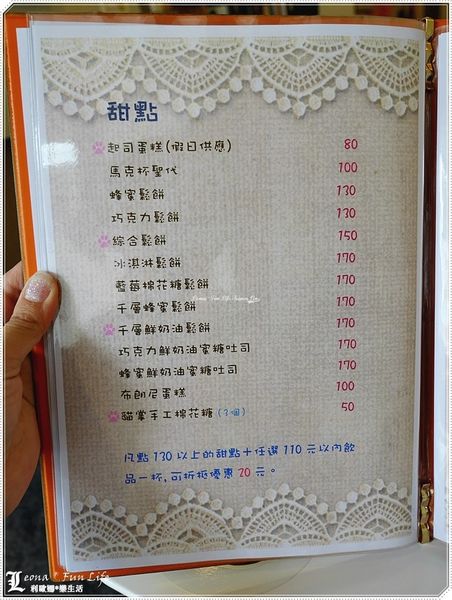 甜點
起司蛋糕(假日供應) 80
馬克杯聖代 100
蜂蜜鬆餅 130
巧克力鬆餅 130
綜合鬆餅 150
冰淇淋鬆餅 170
藍莓棉花糖鬆餅 170
千層蜂蜜鬆餅 170
千層鮮奶油鬆餅 170
巧克力鮮奶油蜜糖吐司 170
蜂蜜鮮奶油蜜糖吐司 170
布朗尼蛋糕 100
貓掌手工棉花糖(3個) 50
凡點130以上的甜點+任選110元以內飲
品一杯,可折抵優惠20元。
Leona Fun Life
利歐娜*樂生活